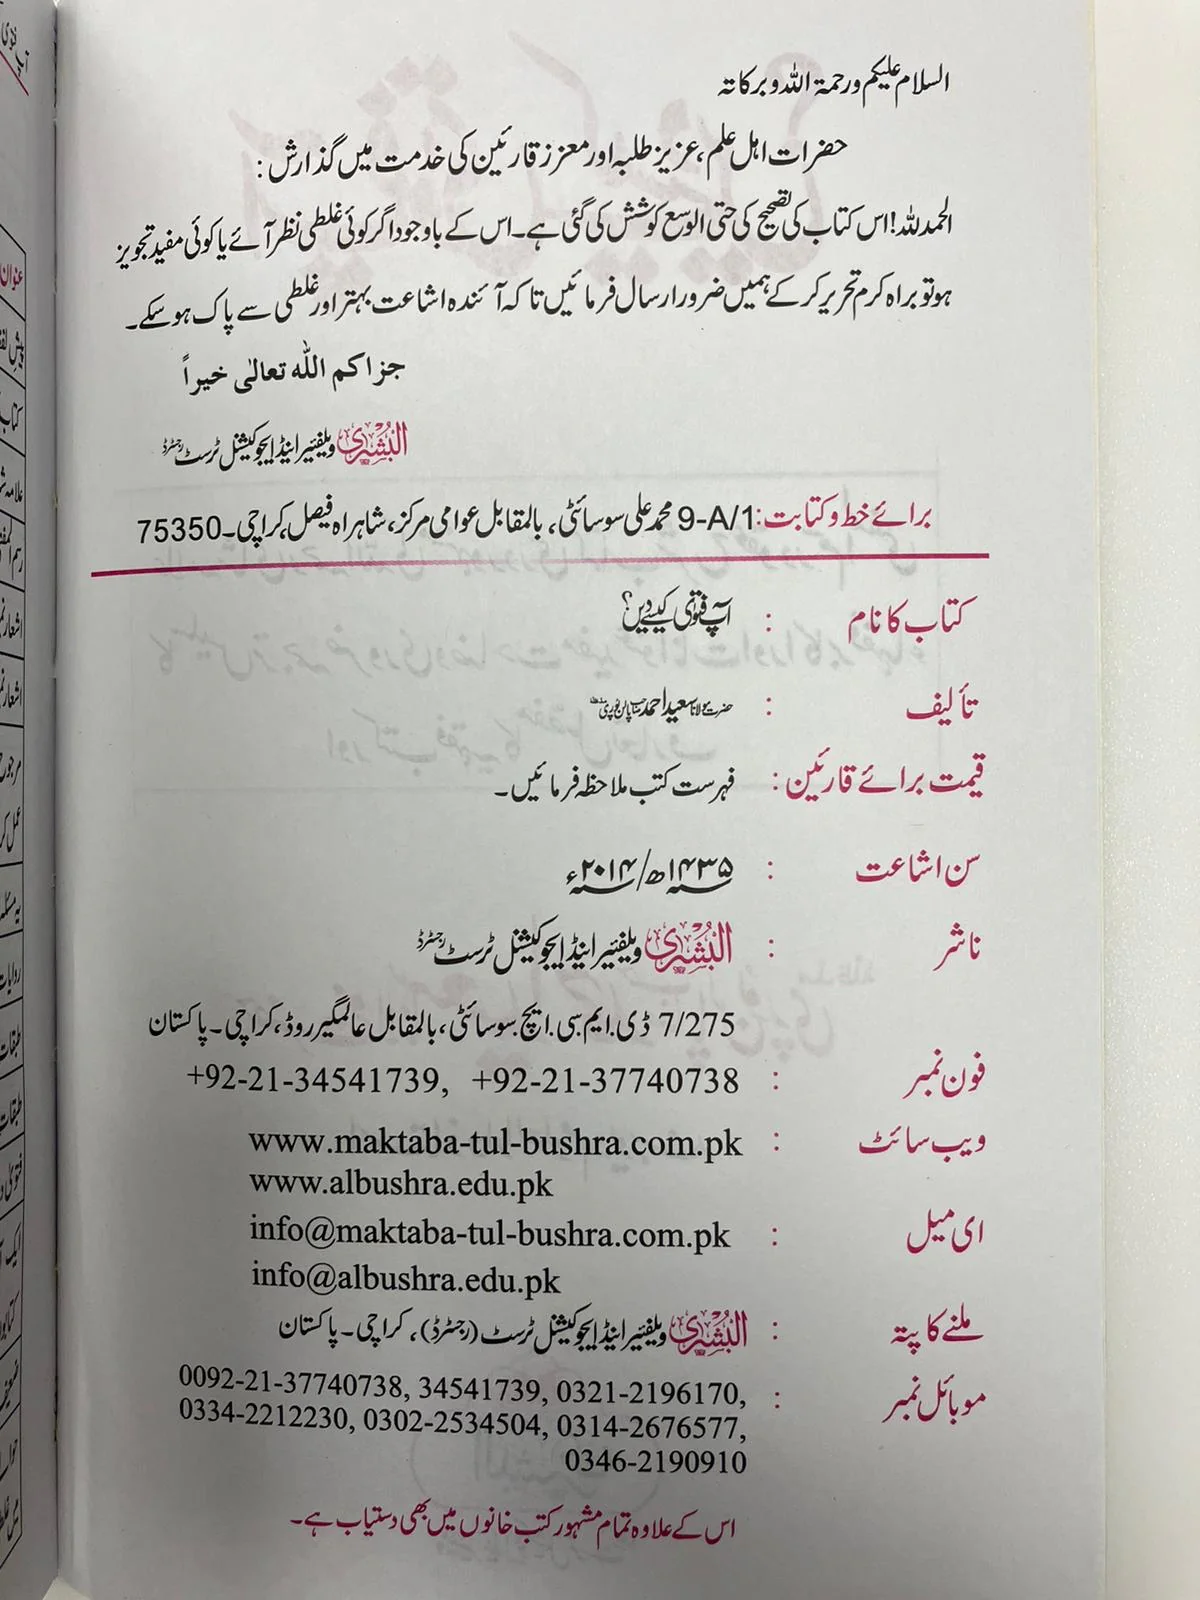 السلام علیکم ورحمۃ اللہ وبرکاتہ
حضرات اہل علم، عزیز طلبہ اور معزز قارئین کی خدمت میں گذارش:
الحمد للہ! اس کتاب کی تصحیح کی حتی الوسع کوشش کی گئی ہے۔ اس کے باوجود اگر کوئی غلطی نظر آئے یا کوئی مفید تجویز
ہو تو براہ کرم تحریر کر کے ہمیں ضرور ارسال فرمائیں تاکہ آئندہ اشاعت بہتر اور غلطی سے پاک ہو سکے۔
جزاکم اللہ تعالی خیراً
البُشریٰ ویلفیئر اینڈ ایجوکیشنل ٹرسٹ رجسٹرڈ
برائے خط و کتابت: 9-A/1 محمد علی سوسائٹی، بالمقابل عوامی مرکز، شاہراہ فیصل، کراچی۔ 75350
کتاب کا نام : آپ فتویٰ کیسے دیں؟
تألیف : حضرت مولانا سعید احمد صاحب پالن پوری مدظلہ
قیمت برائے قارئین : فہرست کتب ملاحظہ فرمائیں۔
سن اشاعت : ۱۴۳۵ھ/ ۲۰۱۴ء
ناشر : البُشریٰ ویلفیئر اینڈ ایجوکیشنل ٹرسٹ رجسٹرڈ
7/275 ڈی.ایم.سی.ایچ.سوسائٹی، بالمقابل عالمگیر روڈ، کراچی۔ پاکستان
فون نمبر : +92-21-34541739, +92-21-37740738
ویب سائٹ : www.maktaba-tul-bushra.com.pk
www.albushra.edu.pk
ای میل : info@maktaba-tul-bushra.com.pk
info@albushra.edu.pk
ملنے کا پتہ : البُشریٰ ویلفیئر اینڈ ایجوکیشنل ٹرسٹ (رجسٹرڈ)، کراچی۔ پاکستان
موبائل نمبر : 0092-21-37740738, 34541739, 0321-2196170,
0334-2212230, 0302-2534504, 0314-2676577,
0346-2190910
اس کے علاوہ تمام مشہور کتب خانوں میں بھی دستیاب ہے۔